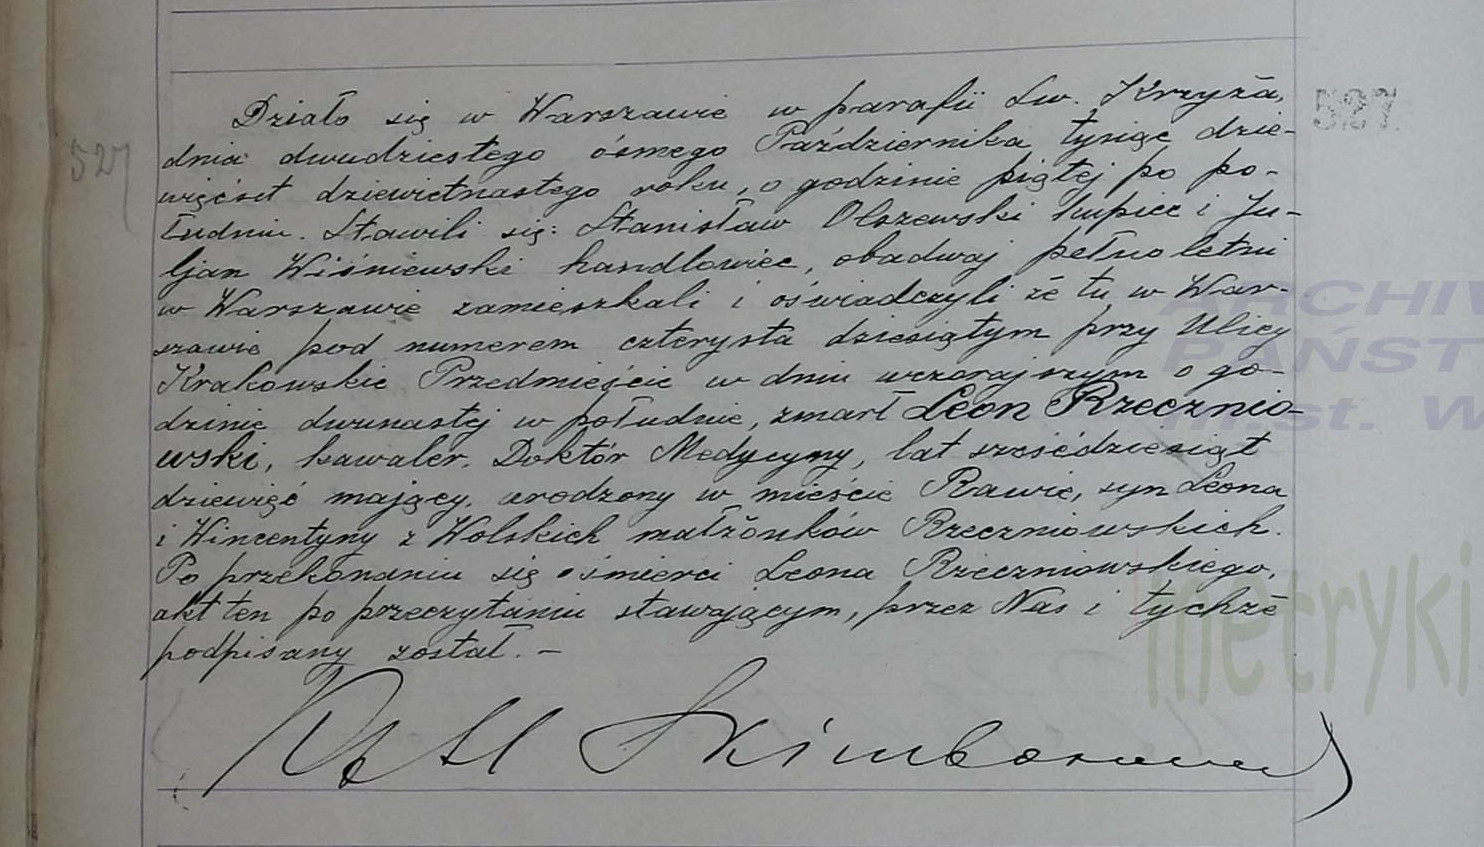 Działo się w Warszawie w parafii Św. Krzyża,
527
527
dnia dwudziestego ósmego Października tysiąc dzie-
więćset dziewietnastego roku, o godzinie piątej po po-
łudniu. Stawili się: Stanisław Olszewski kupiec i Ju-
ljan Wiśniewski handlowiec, obadwaj pełnoletni
w Warszawie zamieszkali i oświadczyli że tu w War-
szawie pod numerem czterysta dziesiątym przy Ulicy
Krakowskie Przedmieście w dniu wczorajszym o go-
dzinie dwunastej w południe, zmarł Leon Rzecznio-
wski, kawaler, Doktór Medycyny, lat sześćdziesiąt
dziewięć mający, urodzony w mieście Rawie, syn Leona
i Wincentyny z Wolskich małżonków Rzeczniowskich.
Po przekonaniu się o śmierci Leona Rzeczniowskiego,
akt ten po przeczytaniu stawającym, przez Nas i tychże
podpisany został. –
ARCHIW
PAŃST
m.st. W
metryki